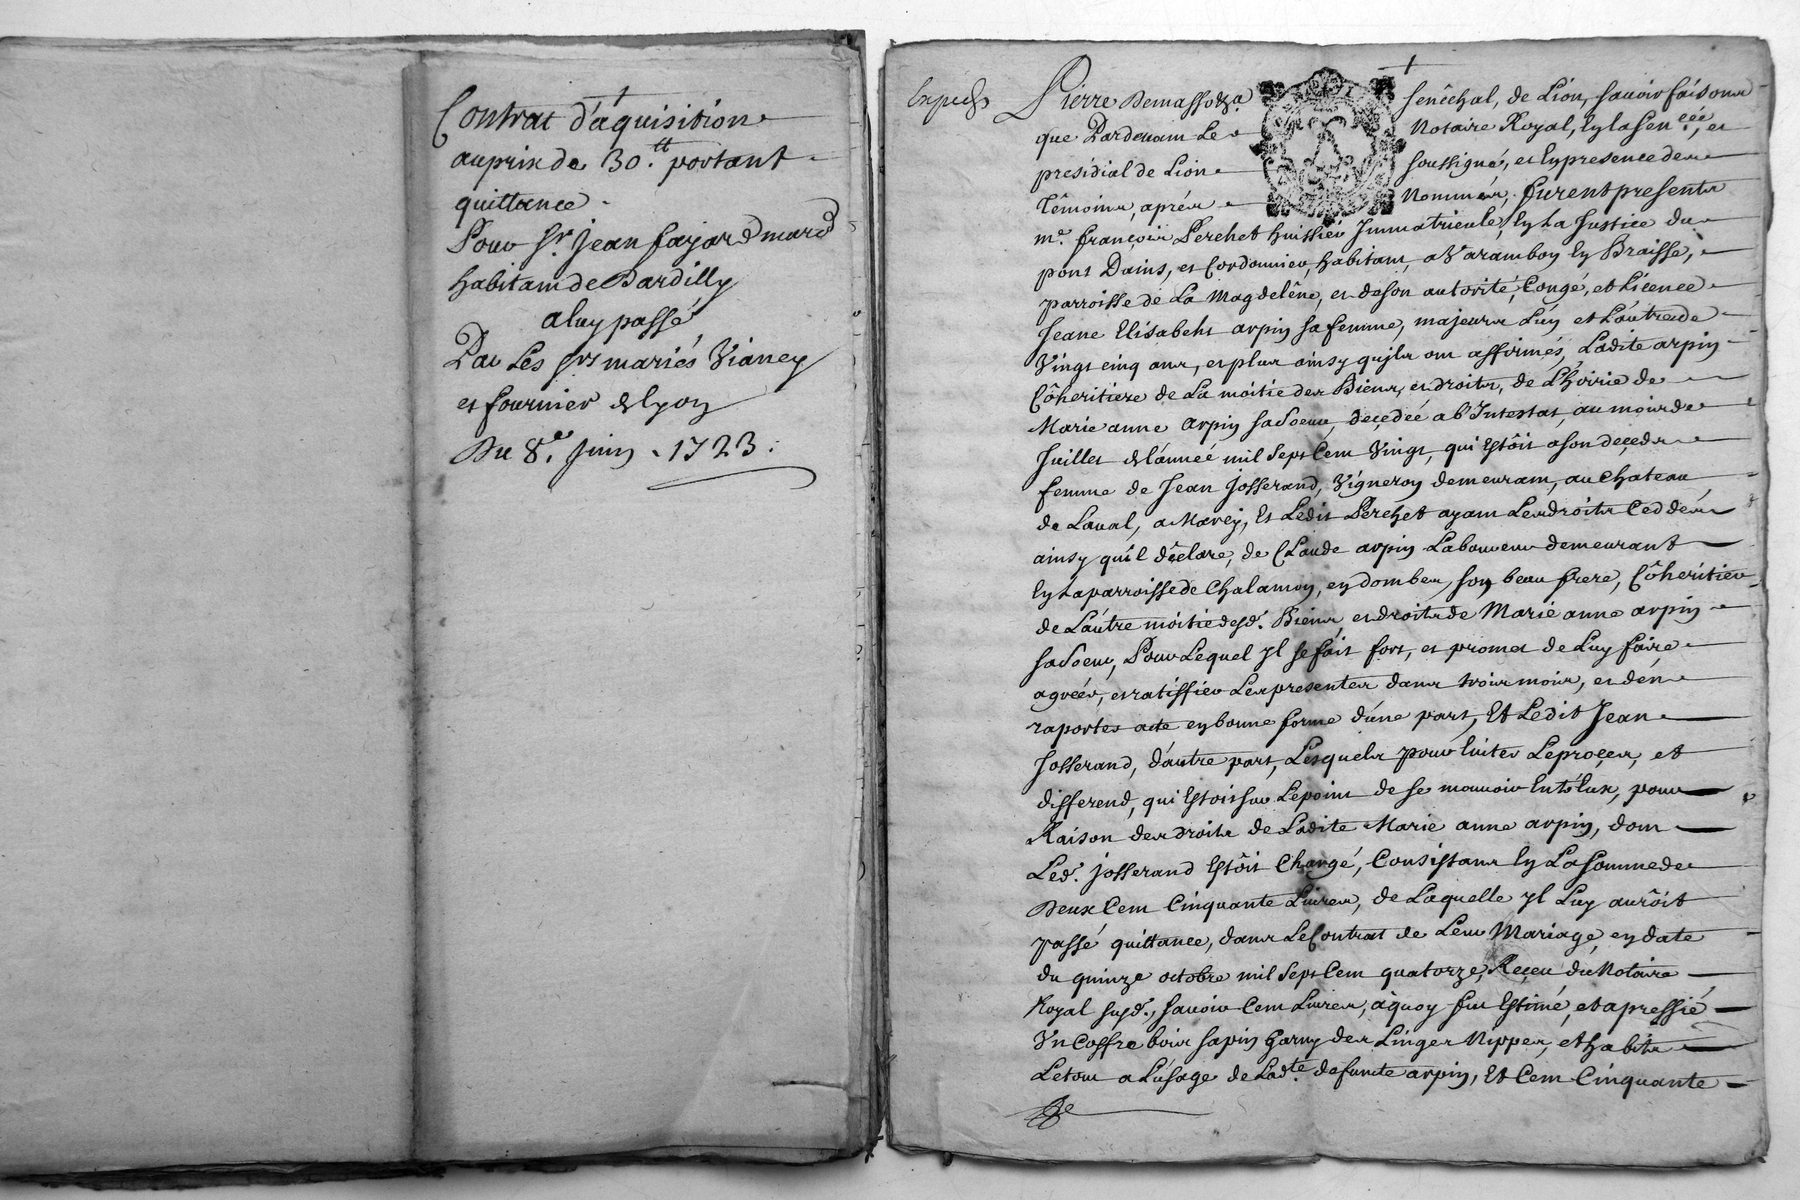 Contrat d'aquisition
au prix de 30.tt portant
quittance
Pour Sr. Jean fayard march
habitant de Dardilly
a luy passé
Par Les srs mariés Vianey
et fournier de lyon
Du 8.e Juin 1723.
Pierre Demasso &a senêchal, de Lion, sauoir faisons
que Pardeuant Le Notaire Royal, En la sen.ceé, et
presidial de Lion soussigné, et En presence des
têmoins, aprés Nommés, furent presents
me. françois Perchet huissier Immatriculé, En La Justice du
pont Dains, et Cordonnier, habitant, a Varambon En Braisse,
parroisse de La Magdelêne, et de son autorité, Congé, et Licence
Jeane Elisabeht arpin sa femme, majeurs Luy et L'autre de
Vingt cinq ans, et plus ainsy qu'jls ont affirmés, Ladite arpin
Côheritiere de La moitié des Biens, et droits, de L'hoirie de
Marie anne arpin sa soeur, decedeé ab Intestat, au mois de
Juillet de l'anneé mil Sept Cent Vingt, qui Estôit a son deçeds
femme de Jean Josserand, Vigneron demeurant, au Chateau
de Laual, a Marcy, Et Ledit Perchet ayant Les droits Ceddés
ainsy qu'il dêclare, de Claude arpin Laboureur demeurant
En La parroisse de Chalamon, en dombes, son beau frere, Côheritier
de L'autre môitié desd. Biens, et droits de Marie anne arpin
sa soeur, Pour Lequel yl se fait fort, et promet de Luy faire
agréer, et ratiffier Les presentes dans trois mois, et d'en
raporter acte en bonne forme d'une part, Et Ledit Jean
Josserand, d'autre part, Lesquels pour Euiter Le procés, et
differend, qui Estoit sur Le point de se mouuoir Entr'Eux, pour
Raison des droits de Ladite Marie anne arpin, dont
Led. josserand Estôit Chargé, Consistans En La somme de
Deux Cent Cinquante Liures, de Laquelle yl Luy aurôit
passé quittance, dans Le Contrat de Leur Mariage, en date
du quinze octobre mil Sept Cent quatorze, Reçeu du Notaire
Royal susd., sauoir Cent Liures, a quoy fut Estimé, et apressié
Vn Coffre bois sapin Garny des Linges Nippes, et habits
Le tout a L'usage de Lad.te defuncte arpin, Et Cent Cinquante